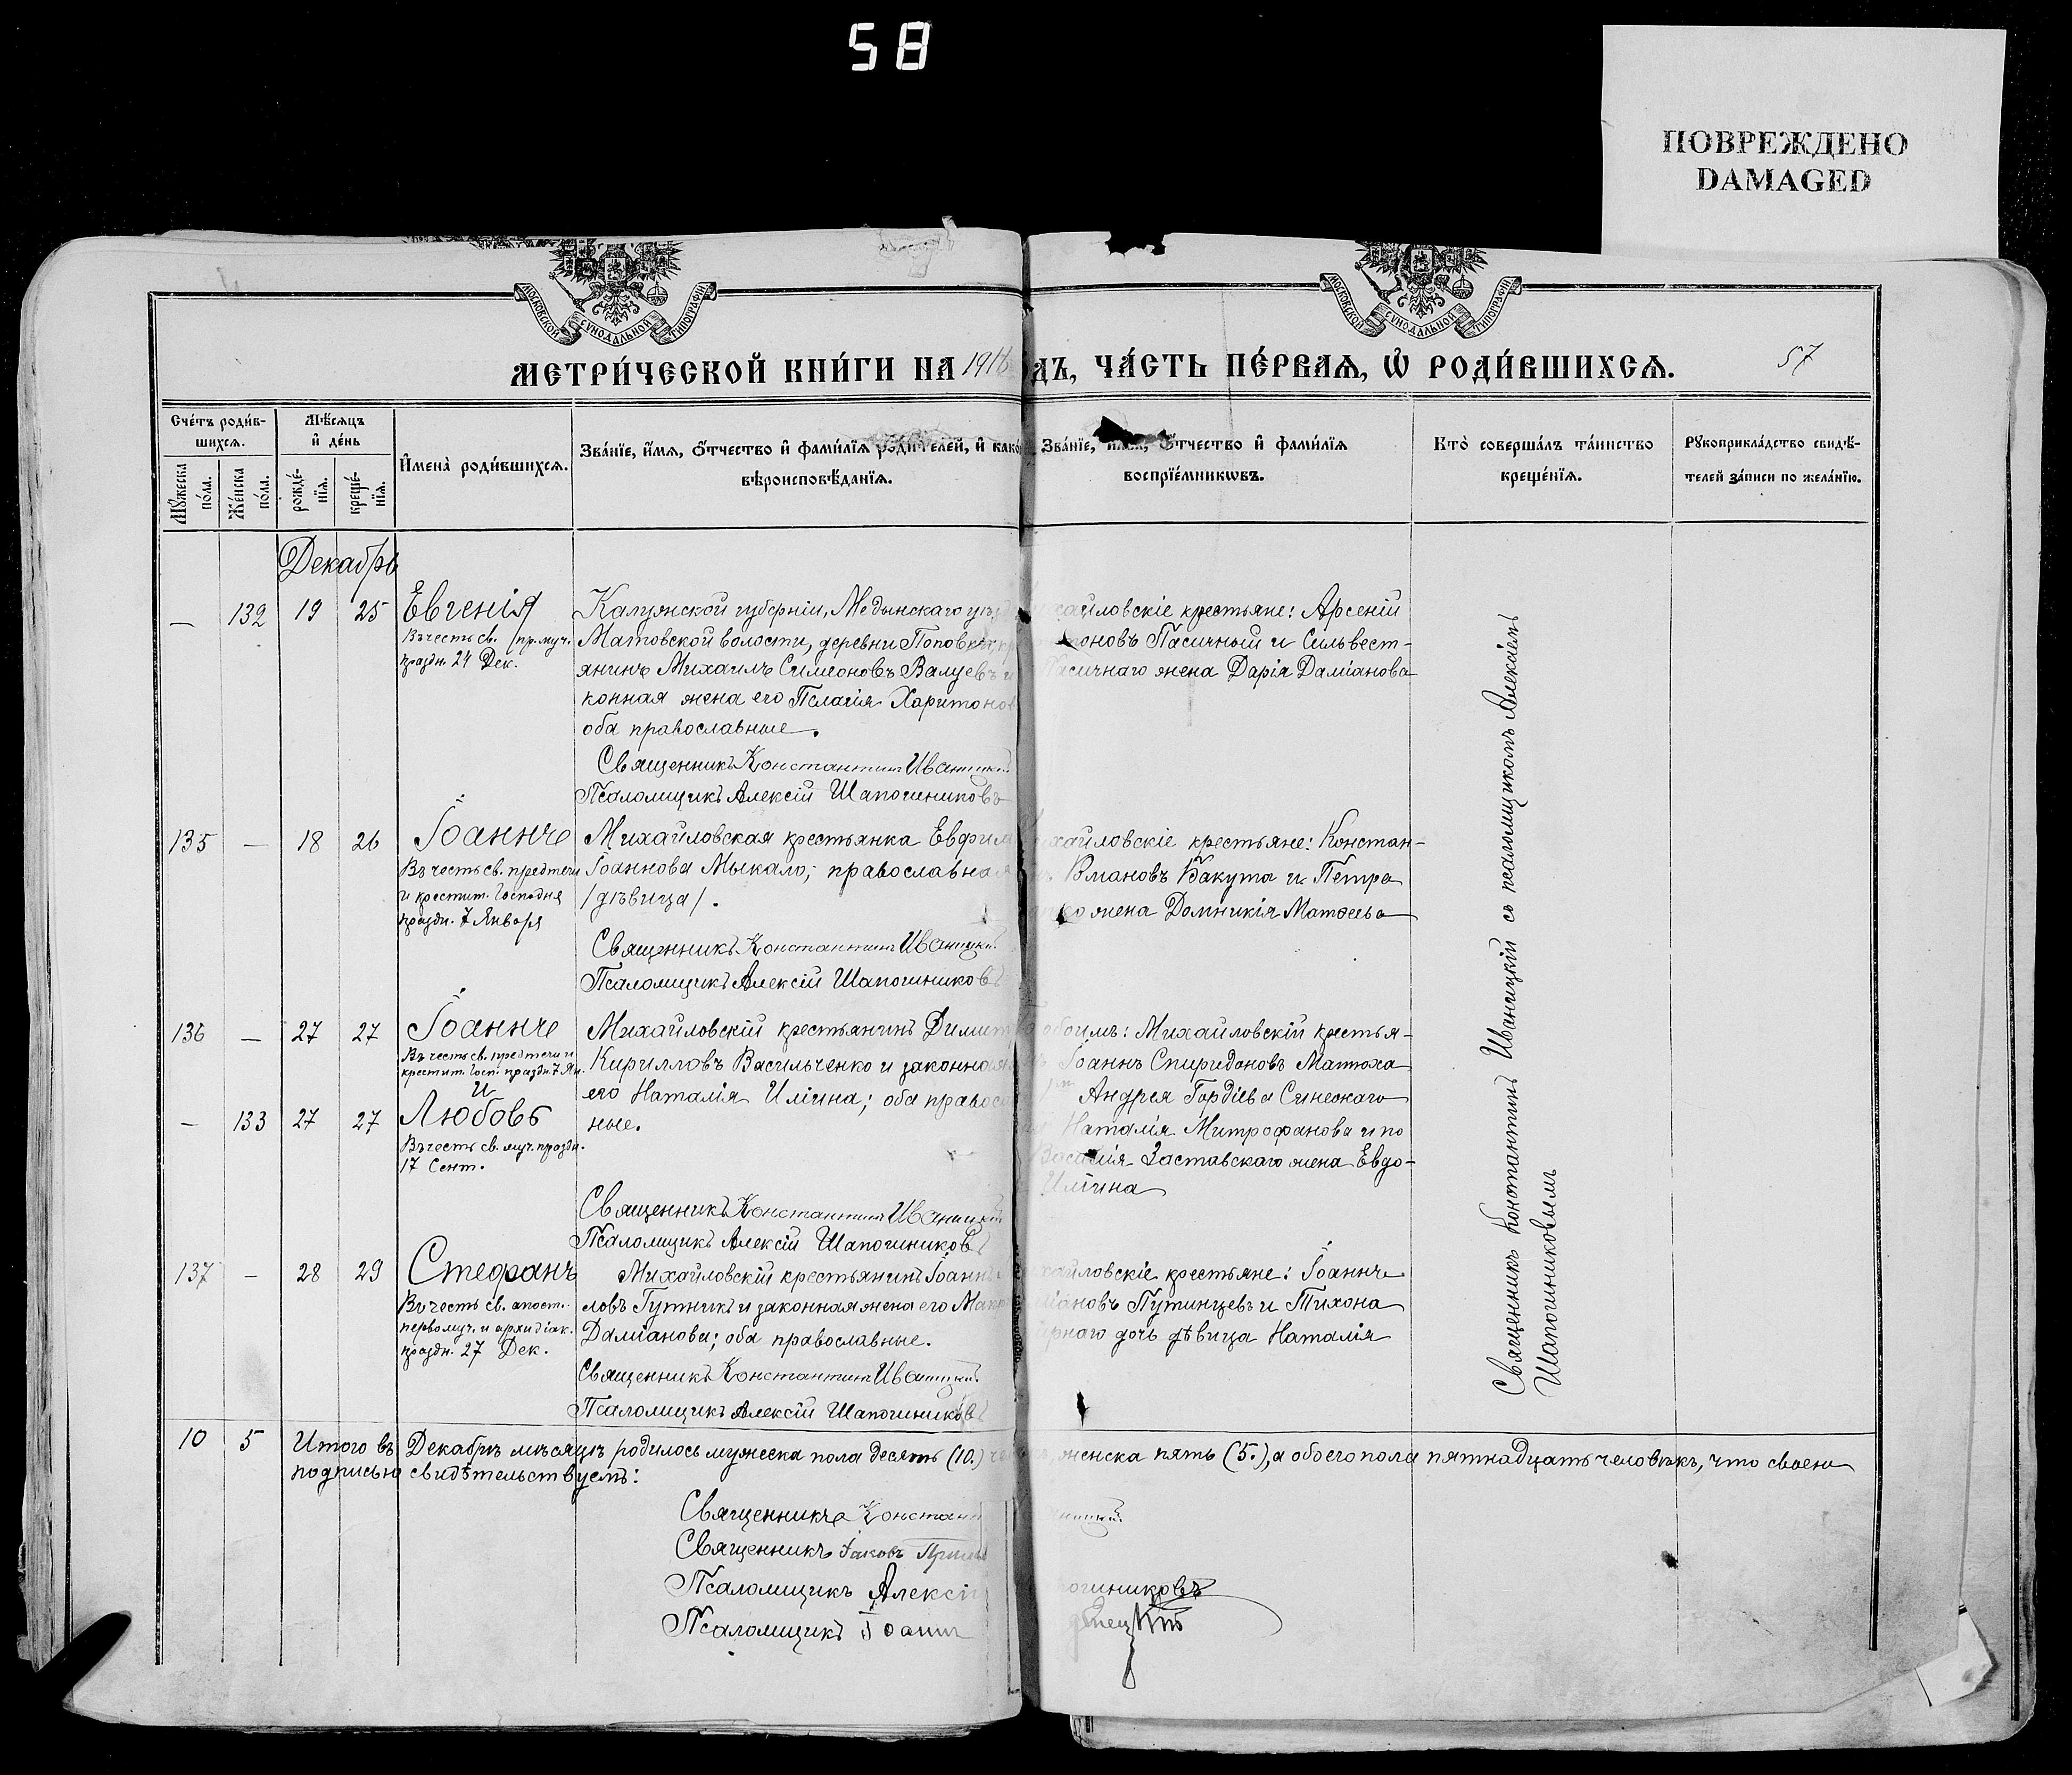 58
ПОВРЕЖДЕНО
DAMAGED
МОСКОВСКОЙ СѴНОДАЛЬНОЙ ТИПОГРАФІИ
МОСКОВСКОЙ СѴНОДАЛЬНОЙ ТИПОГРАФІИ
МЕТРИ́ЧЕСКОЙ КНИ́ГИ НА 1916 ДЪ, ЧА́СТЬ ПЕ́РВАѦ, Ѡ҆ РОДИ́ВШИХСѦ.
57
Сче́тъ роди́в-
шихсѧ.
Мꙋжеска по́ла.
Же́нска по́ла.
Мѣ́сѧцъ
и҆ де́нь
рожде́-
нїѧ.
креще́-
нїѧ.
И҆мена̀ роди́вшихсѧ.
Зва́нїе, и҆́мѧ, ѻ҆́тчество и҆ фами́лїѧ роди́телей, и҆ како
вѣроисповѣ́данїѧ.
Зва́нїе, и҆́мѧ, ѻ҆́тчество и҆ фами́лїѧ
воспрїе́мникѡвъ.
Кто̀ соверша́лъ та́инство
креще́нїѧ.
Рꙋкоприкла́дство свидѣ́-
телей за́писи по жела́нїю.
Декабрь
— 132 19 25 Евгенія
Въ честь св. пр. муч.
праздн. 24 Дек.
Калужской губерніи, Медынскаго уѣзд
Матовской волости, деревни Поповки, кр
янинъ Михаилъ Симеоновъ Валуевъ и
конная жена его Пелагія Харитонов
оба православные.
Священникъ Константинъ Иваницкій
Псаломщикъ Алексій Шапошниковъ
хайловскіе крестьяне: Арсеній
оновъ Пасичный и Сильвест-
Пасичнаго жена Дарія Даміанова
135 — 18 26 Іоаннъ
Въ честь св. предтечи
и крестит. Господня
праздн. 7 Января
Михайловская крестьянка Евфим
Іоаннова Мыкало; православная
/дѣвица/.
Священникъ Константинъ Иваницкій
Псаломщикъ Алексій Шапошниковъ
хайловскіе крестьяне: Констан-
Романовъ Бакута и Петра
жена Домникія Матѳеева
136 — 27 27 Іоаннъ
Въ честь св. предтечи и
крестит. Госп. праздн. 7 Ян.
и
— 133 27 27 Любовь
Въ честь св. муч. праздн.
17 Сент.
Михайловскій крестьянинъ Димит
Кирилловъ Васильченко и законная
его Наталія Иліина; оба правос
ные.
Священникъ Константинъ Иваницкій
Псаломщикъ Алексій Шапошниковъ
обоимъ: Михайловскій крестья-
Іоаннъ Спиридоновъ Матюха
Андрея Гордіева Синескаго
Наталія Митрофанова и по
Василія Заставскаго жена Евдо-
Иліина
137 — 28 29 Стефанъ
Въ честь св. апост.
первомуч. и архидіак.
праздн. 27 Дек.
Михайловскій крестьянинъ Іоаннъ
ловъ Гутникъ и законная жена его Макр
Даміанова; оба православные.
Священникъ Константинъ Иваницкій
Псаломщикъ Алексій Шапошниковъ
хайловскіе крестьяне: Іоаннъ
міановъ Путинцевъ и Тихона
рнаго дочь дѣвица Наталія
Священникъ Константинъ Иваницкій съ псаломщикомъ Алексіемъ
Шапошниковымъ
10 5 Итого въ Декабрѣ мѣсяцѣ родилось мужеска пола десять (10.) че женска пять (5.), а обоего пола пятнадцать человѣкъ, что своею
подписью свидѣтельствуемъ:
Священникъ Констан ницкій
Священникъ Іаковъ
Псаломщикъ Алексій ошниковъ
Псаломщикъ Іоаннъ